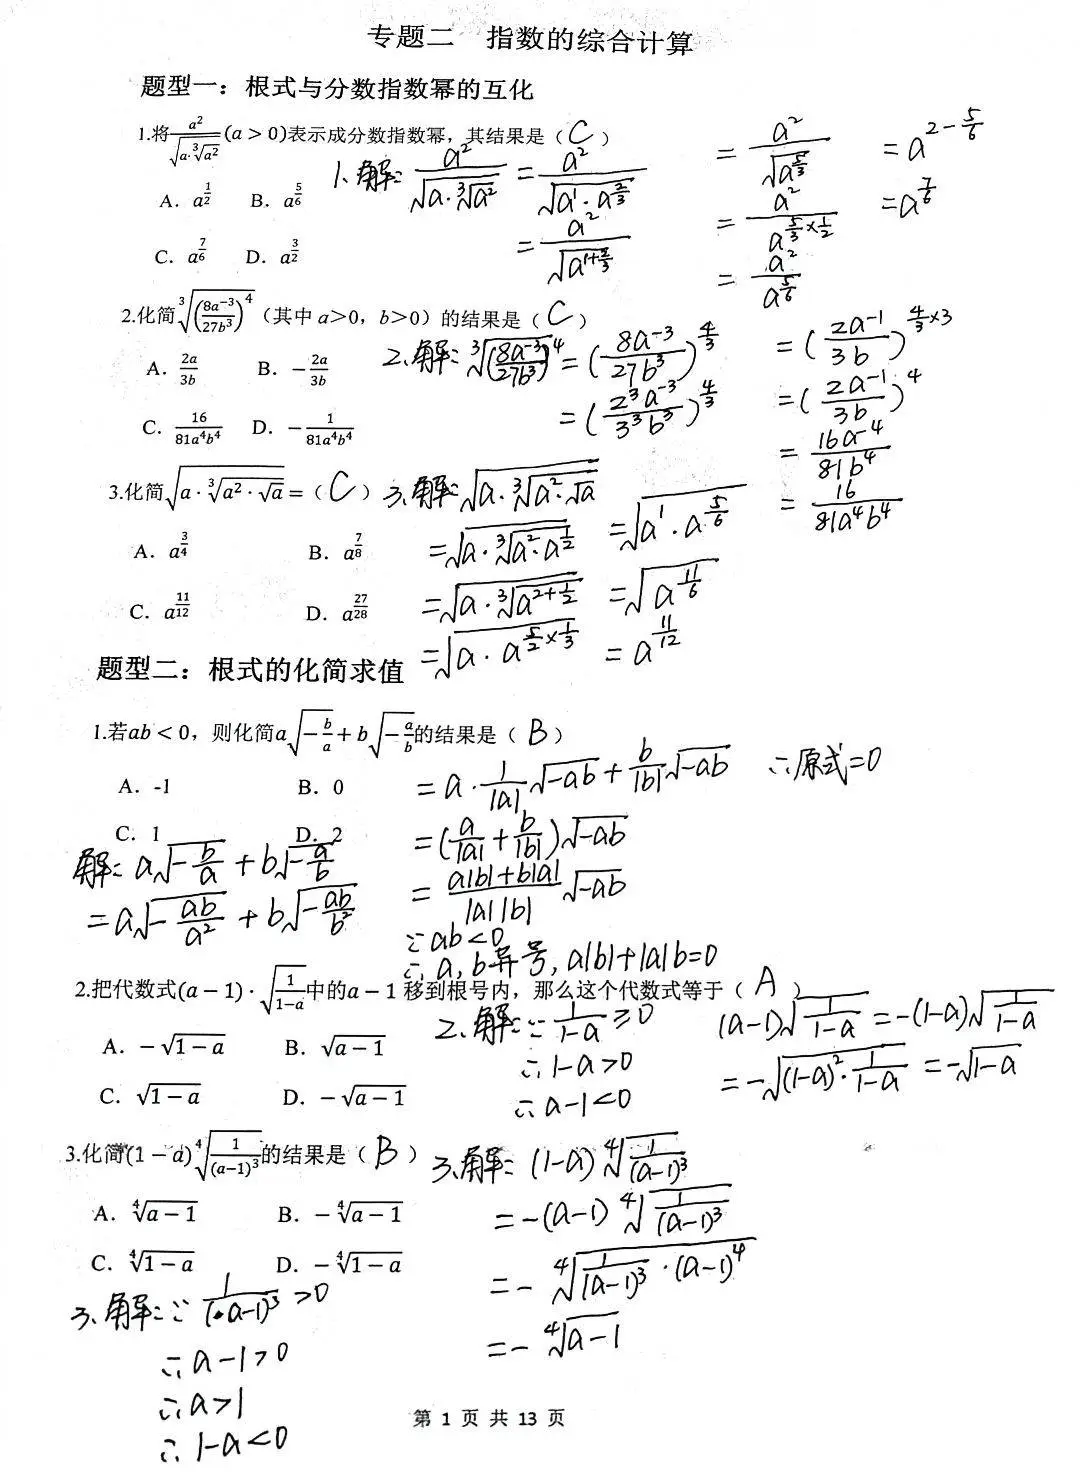 专题二 指数的综合计算
题型一：根式与分数指数幂的互化
1.将 $\frac{a^2}{\sqrt{a\cdot\sqrt[3]{a^2}}}$ (a > 0)表示成分数指数幂，其结果是（ C ）
A. $a^{\frac{1}{2}}$ B. $a^{\frac{5}{6}}$
C. $a^{\frac{7}{6}}$ D. $a^{\frac{3}{2}}$
1、解: $\frac{a^2}{\sqrt{a\cdot\sqrt[3]{a^2}}}=\frac{a^2}{\sqrt{a^1\cdot a^{\frac{2}{3}}}}$
$=\frac{a^2}{\sqrt{a^{1+\frac{2}{3}}}}$
$=\frac{a^2}{\sqrt{a^{\frac{5}{3}}}}$
$=\frac{a^2}{a^{\frac{5}{3}\times\frac{1}{2}}}$
$=\frac{a^2}{a^{\frac{5}{6}}}$
$=a^{2-\frac{5}{6}}$
$=a^{\frac{7}{6}}$
2.化简 $\sqrt[3]{\left(\frac{8a^{-3}}{27b^3}\right)^4}$（其中 a＞0，b＞0）的结果是（ C ）
A. $\frac{2a}{3b}$ B. $-\frac{2a}{3b}$
C. $\frac{16}{81a^4b^4}$ D. $-\frac{1}{81a^4b^4}$
2、解: $\sqrt[3]{(\frac{8a^{-3}}{27b^3})^4}=(\frac{8a^{-3}}{27b^3})^{\frac{4}{3}}$
$=(\frac{2^3a^{-3}}{3^3b^3})^{\frac{4}{3}}$
$=(\frac{2a^{-1}}{3b})^{\frac{4}{3}\times3}$
$=(\frac{2a^{-1}}{3b})^4$
$=\frac{16a^{-4}}{81b^4}$
$=\frac{16}{81a^4b^4}$
3.化简 $\sqrt{a\cdot\sqrt[3]{a^2\cdot\sqrt{a}}}$ =（ C ）
A. $a^{\frac{3}{4}}$ B. $a^{\frac{7}{8}}$
C. $a^{\frac{11}{12}}$ D. $a^{\frac{27}{28}}$
3、解: $\sqrt{a\cdot\sqrt[3]{a^2\cdot\sqrt{a}}}$
$=\sqrt{a\cdot\sqrt[3]{a^2\cdot a^{\frac{1}{2}}}}$
$=\sqrt{a\cdot\sqrt[3]{a^{2+\frac{1}{2}}}}$
$=\sqrt{a\cdot a^{\frac{5}{2}\times\frac{1}{3}}}$
$=\sqrt{a^1\cdot a^{\frac{5}{6}}}$
$=\sqrt{a^{\frac{11}{6}}}$
$=a^{\frac{11}{12}}$
题型二：根式的化简求值
1.若ab < 0，则化简 $a\sqrt{-\frac{b}{a}}+b\sqrt{-\frac{a}{b}}$ 的结果是（ B ）
A. -1 B. 0
C. 1 D. 2
解: $a\sqrt{-\frac{b}{a}}+b\sqrt{-\frac{a}{b}}$
$=a\sqrt{-\frac{ab}{a^2}}+b\sqrt{-\frac{ab}{b^2}}$
$=a\cdot\frac{1}{|a|}\sqrt{-ab}+\frac{b}{|b|}\sqrt{-ab}$
$=(\frac{a}{|a|}+\frac{b}{|b|})\sqrt{-ab}$
$=\frac{a|b|+b|a|}{|a||b|}\sqrt{-ab}$
∵ab<0
∴a,b异号,a|b|+|a|b=0
∴原式=0
2.把代数式(a − 1)· $\sqrt{\frac{1}{1-a}}$ 中的a − 1 移到根号内，那么这个代数式等于（ A ）
A. $-\sqrt{1-a}$ B. $\sqrt{a-1}$
C. $\sqrt{1-a}$ D. $-\sqrt{a-1}$
2、解:∵ $\frac{1}{1-a}$ ≥0
∴1-a>0
∴a-1<0
$(a-1)\sqrt{\frac{1}{1-a}}=-(1-a)\sqrt{\frac{1}{1-a}}$
$=-\sqrt{(1-a)^2\cdot\frac{1}{1-a}}=-\sqrt{1-a}$
3.化简(1 − a) $\sqrt[4]{\frac{1}{(a-1)^3}}$ 的结果是（ B ）
A. $\sqrt[4]{a-1}$ B. $-\sqrt[4]{a-1}$
C. $\sqrt[4]{1-a}$ D. $-\sqrt[4]{1-a}$
3、解:∵ $\frac{1}{(a-1)^3}$ >0
∴a-1>0
∴a>1
∴1-a<0
3、解: $(1-a)\sqrt[4]{\frac{1}{(a-1)^3}}$
$=-(a-1)\sqrt[4]{\frac{1}{(a-1)^3}}$
$=-\sqrt[4]{\frac{1}{(a-1)^3}\cdot(a-1)^4}$
$=-\sqrt[4]{a-1}$
第 1 页 共 13 页